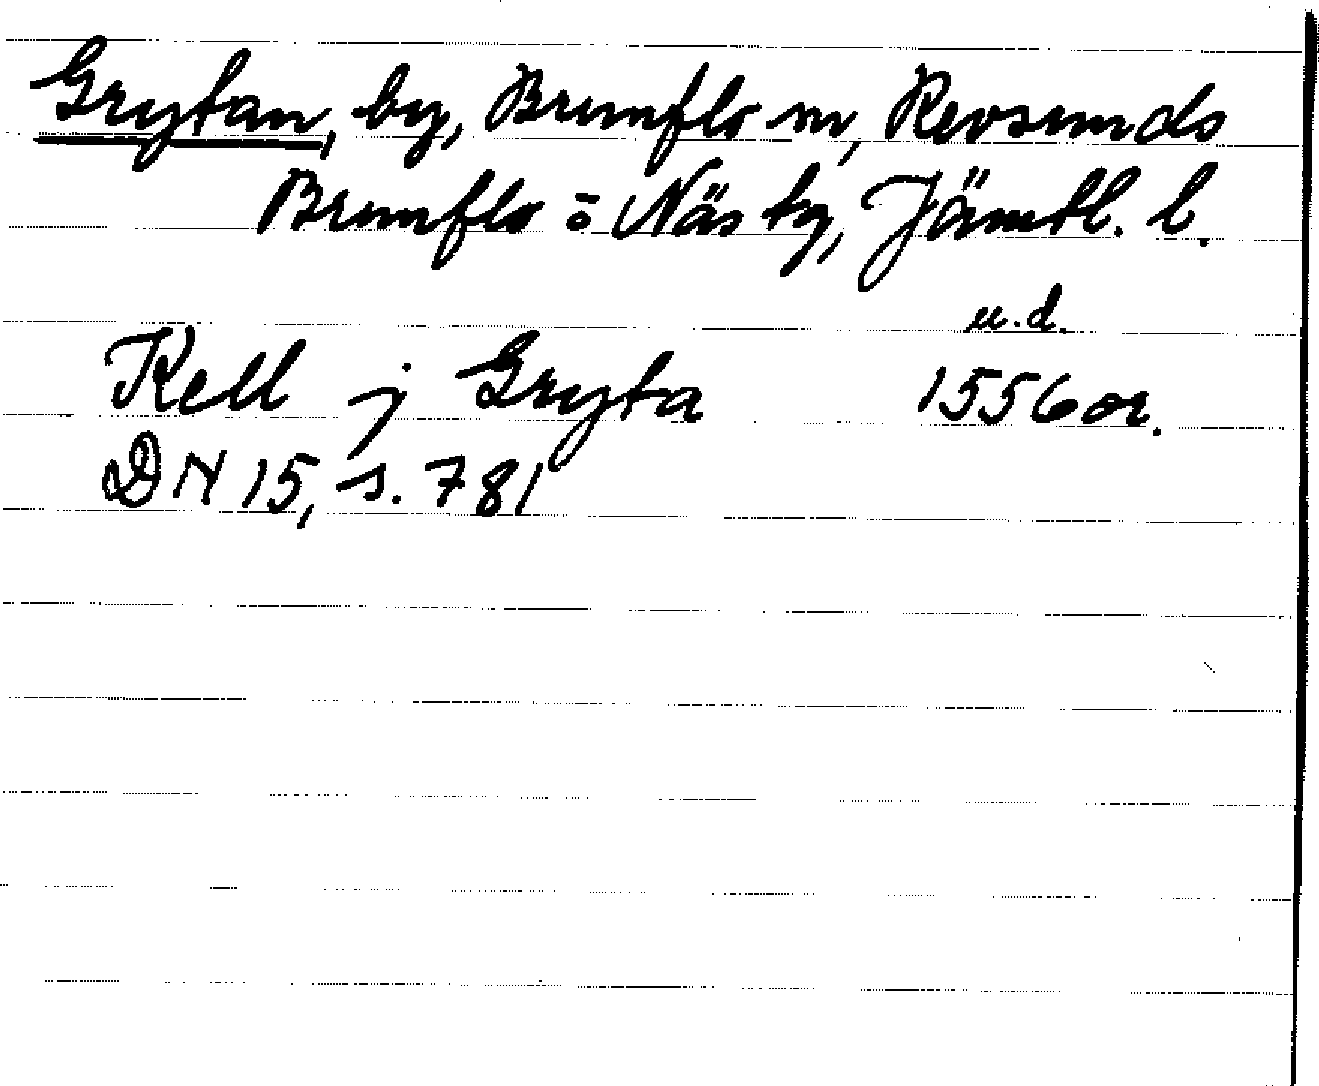 Grytan, by, Brunflo sn, Revsunds
Brunflo o Näs tg, Jämtl. l.
u.d.
Kell j Gryta 1556 or.
DN 15, s. 781